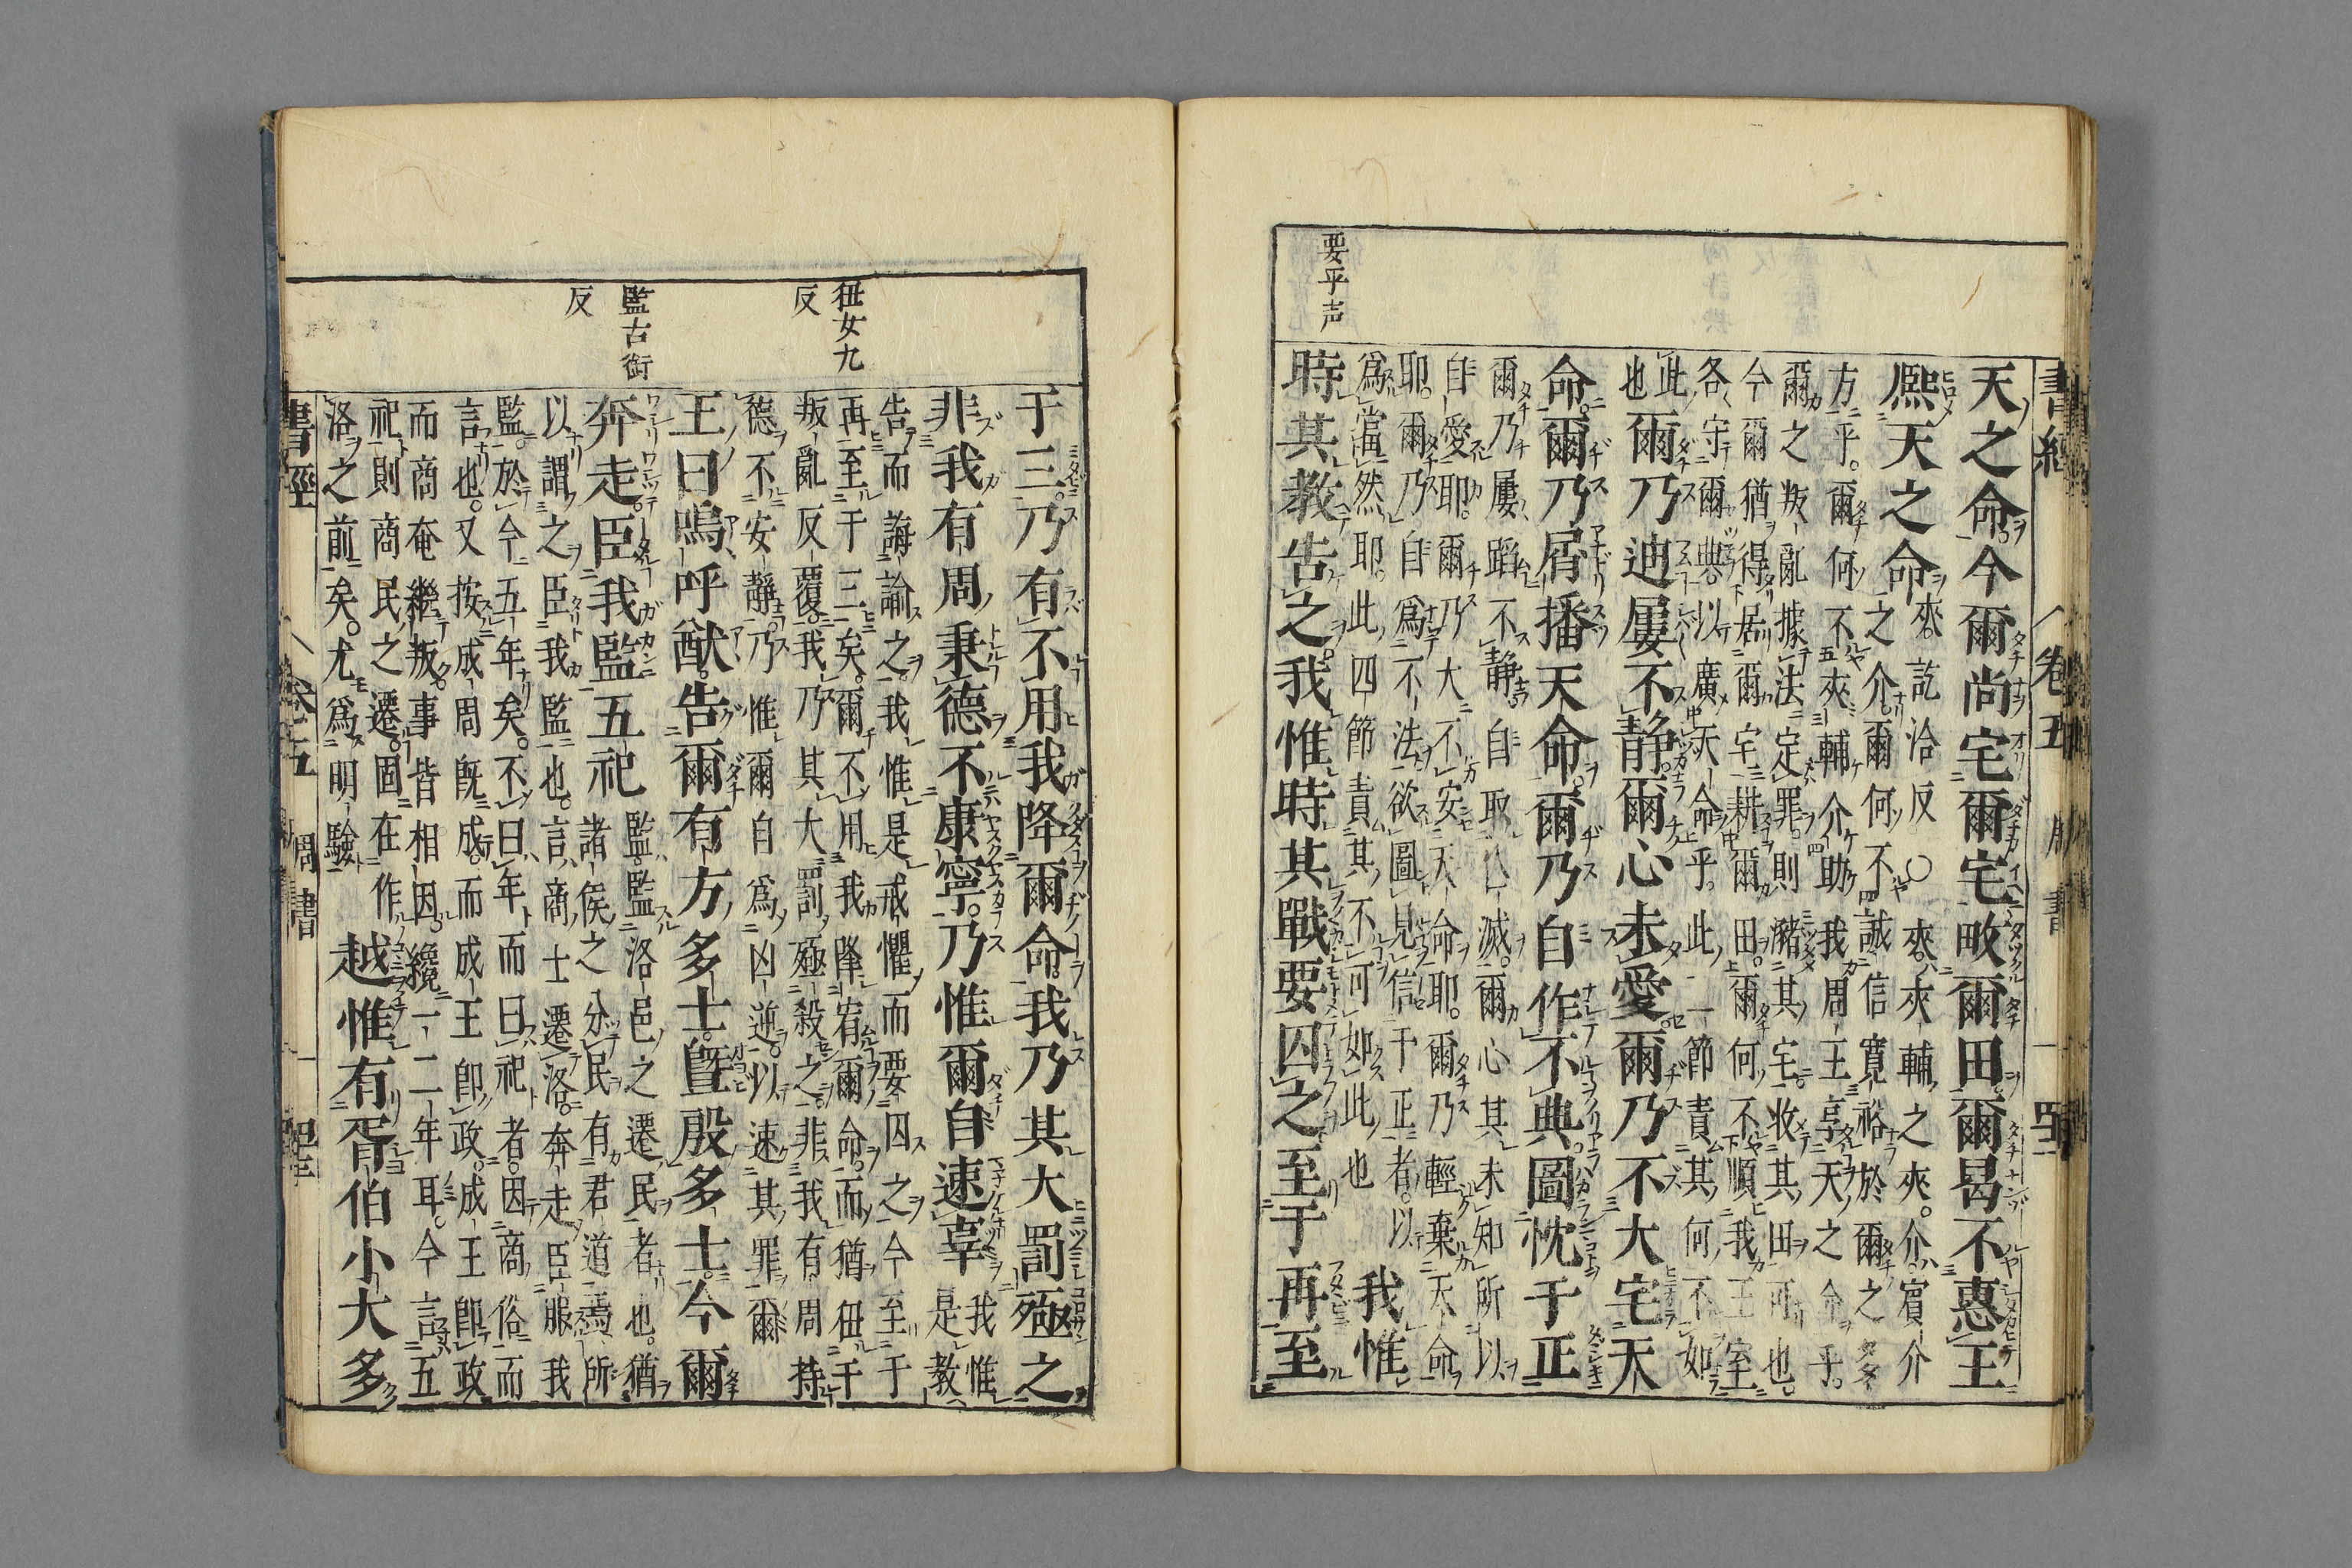 書經 卷五 周書
要平声
天之命今爾尚宅爾宅畋爾田爾曷不惠王
熙天之命
夾訖洽反○夾夾輔之夾介賓介
之介爾何不誠信寛裕於爾之多
方乎爾何不夾輔介助我周王享天之命乎
爾之叛亂據法定罪則瀦其宅收其田可也
今爾猶得居爾宅耕爾田爾何不順我王室
各守爾典以廣天命乎此一節責其何不如
此
也
爾乃迪屢不靜爾心未愛爾乃不大宅天
命爾乃屑播天命爾乃自作不典圖忱于正
爾乃屢蹈不靜自取亡滅爾心其未知所以
自愛耶爾乃大不安天命耶爾乃輕棄天命
耶爾乃自爲不法欲圖見信于正者以
爲當然耶此四節責其不可如此也
我惟
時其教告之我惟時其戰要囚之至于再至
狃女九
反
監古銜
反
于三乃有不用我降爾命我乃其大罰殛之
非我有周秉德不康寧乃惟爾自速辜
我惟
是教
告而誨諭之我惟是戒懼而要囚之今至于
再至于三矣爾不用我降宥爾命而猶狃于
叛亂反覆我乃其大罰殛殺之非我有周持
德不安靜乃惟爾自爲凶逆以速其罪爾
王曰嗚呼猷告爾有方多士曁殷多士今爾
奔走臣我監五祀
監監洛邑之遷民者也猶
諸侯之分民有君道焉所
以謂之臣我監也言商士遷洛奔走臣服我
監於今五年矣不曰年而曰祀者因商俗而
言也又按成周既成而成王即政成王即政
而商奄繼叛事皆相因纔一二年耳今言五
祀則商民之遷固在作
洛之前矣尤爲明驗
越惟有胥伯小大多
書經 卷五 周書